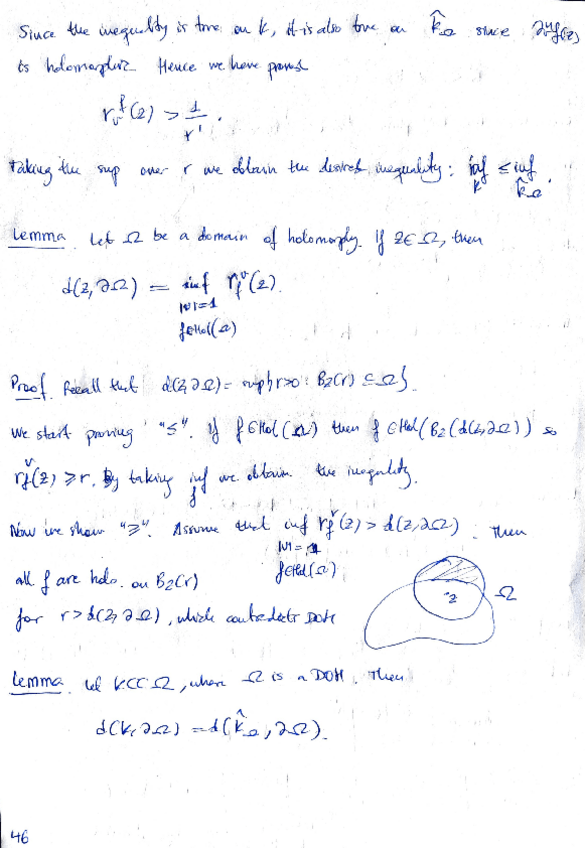 Since the inequality is true on K, it is also true on K̂_Ω since ∂^α f(z)
is holomorphic. Hence we have proved
r_v^f(z) > 1/r'.
Taking the sup over r we obtain the desired inequality: inf_K ≤ inf_K̂_Ω.
Lemma. Let Ω be a domain of holomorphy. If z∈Ω, then
d(z,∂Ω) = inf r_f^v(z).
|v|=1
f∈Hol(Ω)
Proof. Recall that d(z,∂Ω) = sup{r>0 : B_z(r) ⊆ Ω}.
We start proving "≤". If f∈Hol(Ω) then f∈Hol(B_z(d(z,∂Ω))) so
r_f^v(z) ≥ r. By taking inf_f we obtain the inequality.
Now we show "≥". Assume that inf r_f^v(z) > d(z,∂Ω). Then
|v|=1
f∈Hol(Ω)
all f are holo. on B_z(r)
for r>d(z,∂Ω), which contradicts DOH
z Ω
Lemma. Let K⊂⊂Ω, when Ω is a DOH. Then
d(K,∂Ω) = d(K̂_Ω,∂Ω).
46